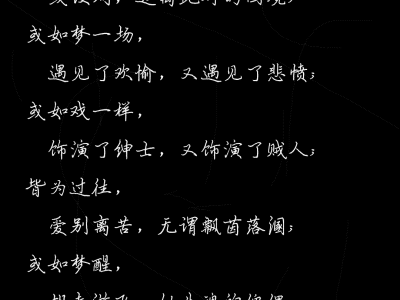 或如梦一场，
遇见了欢愉，又遇见了悲愤；
或如戏一样，
饰演了绅士，又饰演了贼人；
皆为过往，
爱别离苦，无谓飘茵落溷；
或如梦醒，